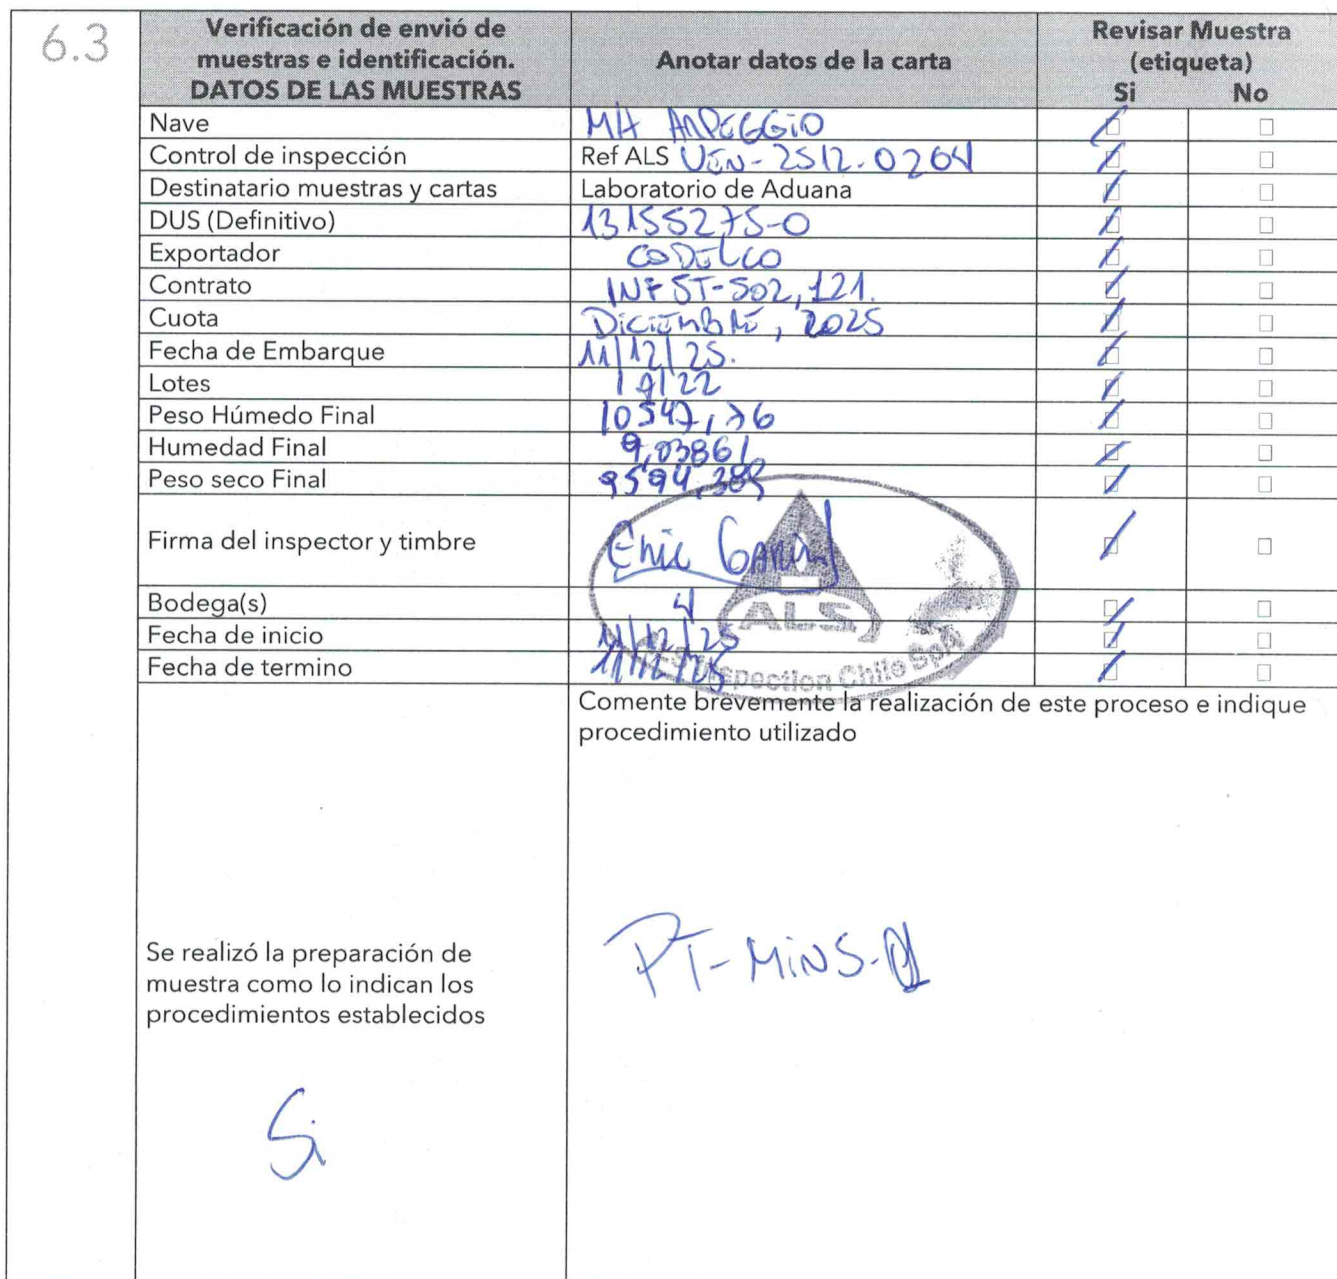 6.3
Verificación de envió de muestras e identificación. DATOS DE LAS MUESTRAS
Anotar datos de la carta
Revisar Muestra (etiqueta)
Si No
Nave M/A ARPEGGIO
Control de inspección Ref ALS VEN-2512.0264
Destinatario muestras y cartas Laboratorio de Aduana
DUS (Definitivo) 13155275-0
Exportador CODELCO
Contrato INF ST-502,121.
Cuota DiCiEMBRE, 2025
Fecha de Embarque 11/12/25.
Lotes
Peso Húmedo Final 10547,76
Humedad Final 9,03861
Peso seco Final 9594,389
Firma del inspector y timbre Eric
ALS
ALS Inspection Chile SpA
Bodega(s) 4
Fecha de inicio 11/12/25
Fecha de termino 11/12/25
Comente brevemente la realización de este proceso e indique
procedimiento utilizado
Se realizó la preparación de
muestra como lo indican los
procedimientos establecidos
PT-MiNS-01
Si